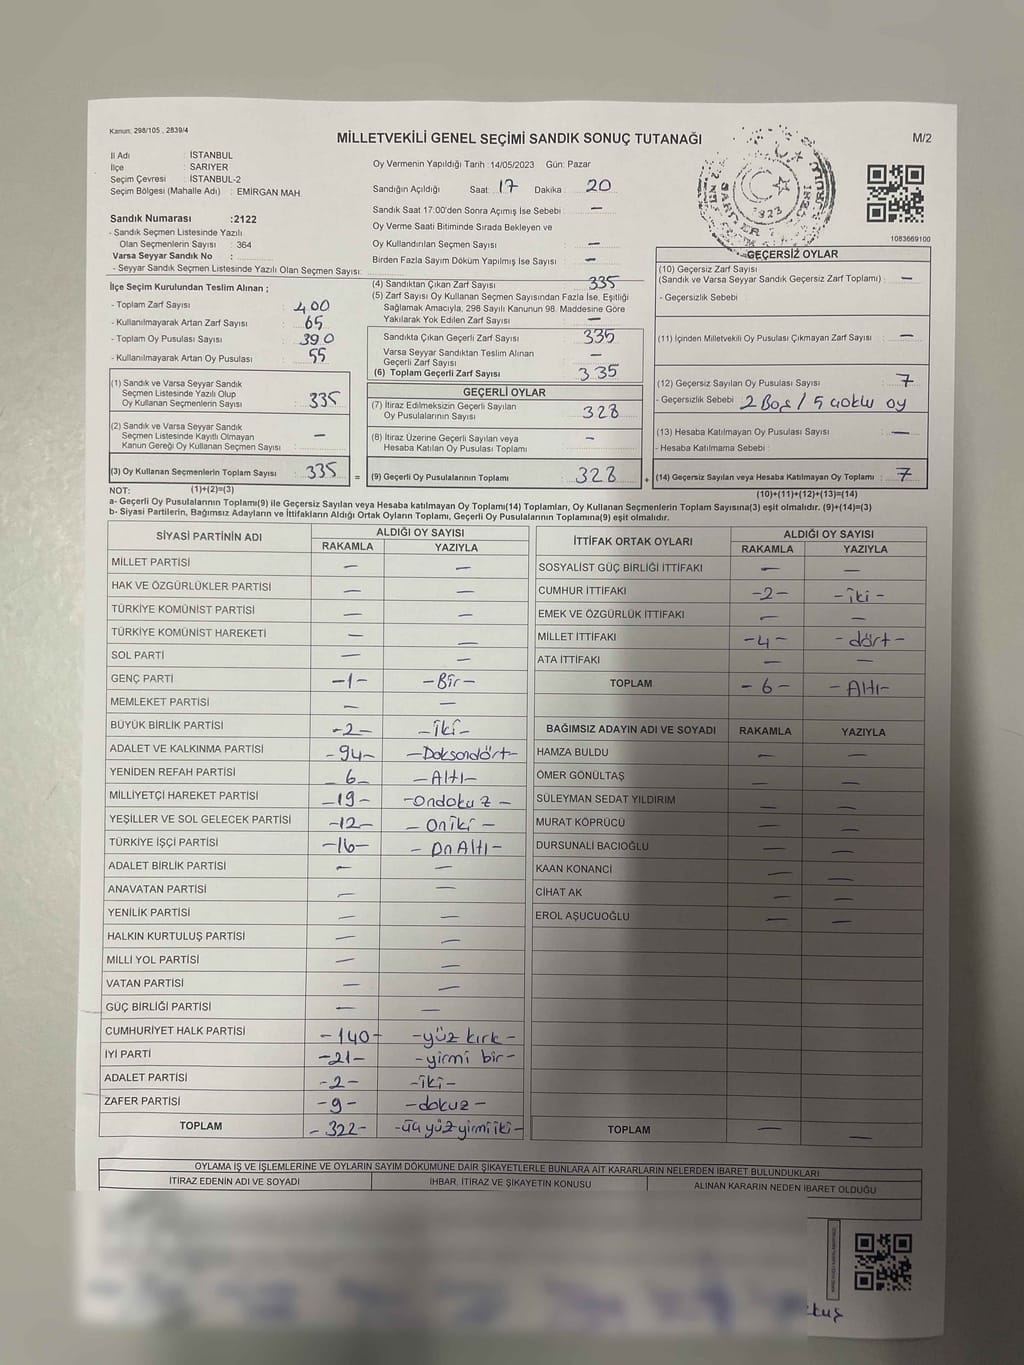 Kanun: 298/105 , 2839/4
MİLLETVEKİLİ GENEL SEÇİMİ SANDIK SONUÇ TUTANAĞI
M/2
İl Adı : İSTANBUL
İlçe : SARIYER
Seçim Çevresi : İSTANBUL-2
Seçim Bölgesi (Mahalle Adı) : EMİRGAN MAH.
Sandık Numarası :2122
- Sandık Seçmen Listesinde Yazılı
Olan Seçmenlerin Sayısı : 364
Varsa Seyyar Sandık No :
- Seyyar Sandık Seçmen Listesinde Yazılı Olan Seçmen Sayısı:
Oy Vermenin Yapıldığı Tarih : 14/05/2023 Gün: Pazar
Sandığın Açıldığı Saat : 17 Dakika : 20
Sandık Saat 17.00'den Sonra Açımış İse Sebebi : —
Oy Verme Saati Bitiminde Sırada Bekleyen ve
Oy Kullandırılan Seçmen Sayısı : —
Birden Fazla Sayım Döküm Yapılmış İse Sayısı : —
1083669100
İlçe Seçim Kurulundan Teslim Alınan ;
- Toplam Zarf Sayısı : 400
- Kullanılmayarak Artan Zarf Sayısı : 65
- Toplam Oy Pusulası Sayısı : 390
- Kullanılmayarak Artan Oy Pusulası : 55
(1) Sandık ve Varsa Seyyar Sandık
Seçmen Listesinde Yazılı Olup
Oy Kullanan Seçmenlerin Sayısı : 335
(2) Sandık ve Varsa Seyyar Sandık
Seçmen Listesinde Kayıtlı Olmayan
Kanun Gereği Oy Kullanan Seçmen Sayısı : —
(3) Oy Kullanan Seçmenlerin Toplam Sayısı : 335
(1)+(2)=(3)
(4) Sandıktan Çıkan Zarf Sayısı : 335
(5) Zarf Sayısı Oy Kullanan Seçmen Sayısından Fazla İse, Eşitliği
Sağlamak Amacıyla, 298 Sayılı Kanunun 98. Maddesine Göre
Yakılarak Yok Edilen Zarf Sayısı : —
Sandıkta Çıkan Geçerli Zarf Sayısı : 335
Varsa Seyyar Sandıktan Teslim Alınan
Geçerli Zarf Sayısı : —
(6) Toplam Geçerli Zarf Sayısı : 335
GEÇERLİ OYLAR
(7) İtiraz Edilmeksizin Geçerli Sayılan
Oy Pusulalarının Sayısı : 328
(8) İtiraz Üzerine Geçerli Sayılan veya
Hesaba Katılan Oy Pusulası Toplamı : -
= (9) Geçerli Oy Pusulalarının Toplamı : 328
GEÇERSİZ OYLAR
(10) Geçersiz Zarf Sayısı
(Sandık ve Varsa Seyyar Sandık Geçersiz Zarf Toplamı) : —
- Geçersizlik Sebebi :
(11) İçinden Milletvekili Oy Pusulası Çıkmayan Zarf Sayısı : —
(12) Geçersiz Sayılan Oy Pusulası Sayısı : 7
- Geçersizlik Sebebi : 2 Boş / 5 çoklu oy
(13) Hesaba Katılmayan Oy Pusulası Sayısı : —
- Hesaba Katılmama Sebebi :
+ (14) Geçersiz Sayılan veya Hesaba Katılmayan Oy Toplamı : 7
(10)+(11)+(12)+(13)=(14)
NOT:
a- Geçerli Oy Pusulalarının Toplamı(9) ile Geçersiz Sayılan veya Hesaba katılmayan Oy Toplamı(14) Toplamları, Oy Kullanan Seçmenlerin Toplam Sayısına(3) eşit olmalıdır. (9)+(14)=(3)
b- Siyasi Partilerin, Bağımsız Adayların ve İttifakların Aldığı Ortak Oyların Toplamı, Geçerli Oy Pusulalarının Toplamına(9) eşit olmalıdır.
SİYASİ PARTİNİN ADI ALDIĞI OY SAYISI
RAKAMLA YAZIYLA
MİLLET PARTİSİ — —
HAK VE ÖZGÜRLÜKLER PARTİSİ — —
TÜRKİYE KOMÜNİST PARTİSİ — —
TÜRKİYE KOMÜNİST HAREKETİ — —
SOL PARTİ — —
GENÇ PARTİ -1- -Bir-
MEMLEKET PARTİSİ — —
BÜYÜK BİRLİK PARTİSİ -2- -iki-
ADALET VE KALKINMA PARTİSİ -94- -Doksandört-
YENİDEN REFAH PARTİSİ -6- -Altı-
MİLLİYETÇİ HAREKET PARTİSİ -19- -Ondokuz-
YEŞİLLER VE SOL GELECEK PARTİSİ -12- -Oniki-
TÜRKİYE İŞÇİ PARTİSİ -16- -OnAltı-
ADALET BİRLİK PARTİSİ — —
ANAVATAN PARTİSİ — —
YENİLİK PARTİSİ — —
HALKIN KURTULUŞ PARTİSİ — —
MİLLİ YOL PARTİSİ — —
VATAN PARTİSİ — —
GÜÇ BİRLİĞİ PARTİSİ — —
CUMHURİYET HALK PARTİSİ -140- -yüz kırk-
İYİ PARTİ -21- -yirmi bir-
ADALET PARTİSİ -2- -iki-
ZAFER PARTİSİ -9- -dokuz-
TOPLAM -322- -üçyüzyirmiiki-
İTTİFAK ORTAK OYLARI ALDIĞI OY SAYISI
RAKAMLA YAZIYLA
SOSYALİST GÜÇ BİRLİĞİ İTTİFAKI — —
CUMHUR İTTİFAKI -2- -iki-
EMEK VE ÖZGÜRLÜK İTTİFAKI — —
MİLLET İTTİFAKI -4- -dört-
ATA İTTİFAKI — —
TOPLAM -6- -Altı-
BAĞIMSIZ ADAYIN ADI VE SOYADI RAKAMLA YAZIYLA
HAMZA BULDU — —
ÖMER GÖNÜLTAŞ — —
SÜLEYMAN SEDAT YILDIRIM — —
MURAT KÖPRÜCÜ — —
DURSUNALİ BACIOĞLU — —
KAAN KONANCİ — —
CİHAT AK — —
EROL AŞUCUOĞLU — —
TOPLAM — —
OYLAMA İŞ VE İŞLEMLERİNE VE OYLARIN SAYIM DÖKÜMÜNE DAİR ŞİKAYETLERLE BUNLARA AİT KARARLARIN NELERDEN İBARET BULUNDUKLARI
İTİRAZ EDENİN ADI VE SOYADI İHBAR, İTİRAZ VE ŞİKAYETİN KONUSU ALINAN KARARIN NEDEN İBARET OLDUĞU